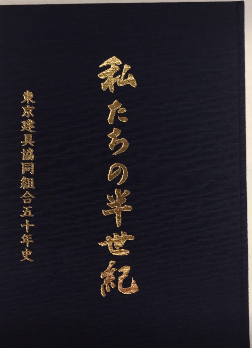 私たちの半世紀
東京建具協同組合五十年史